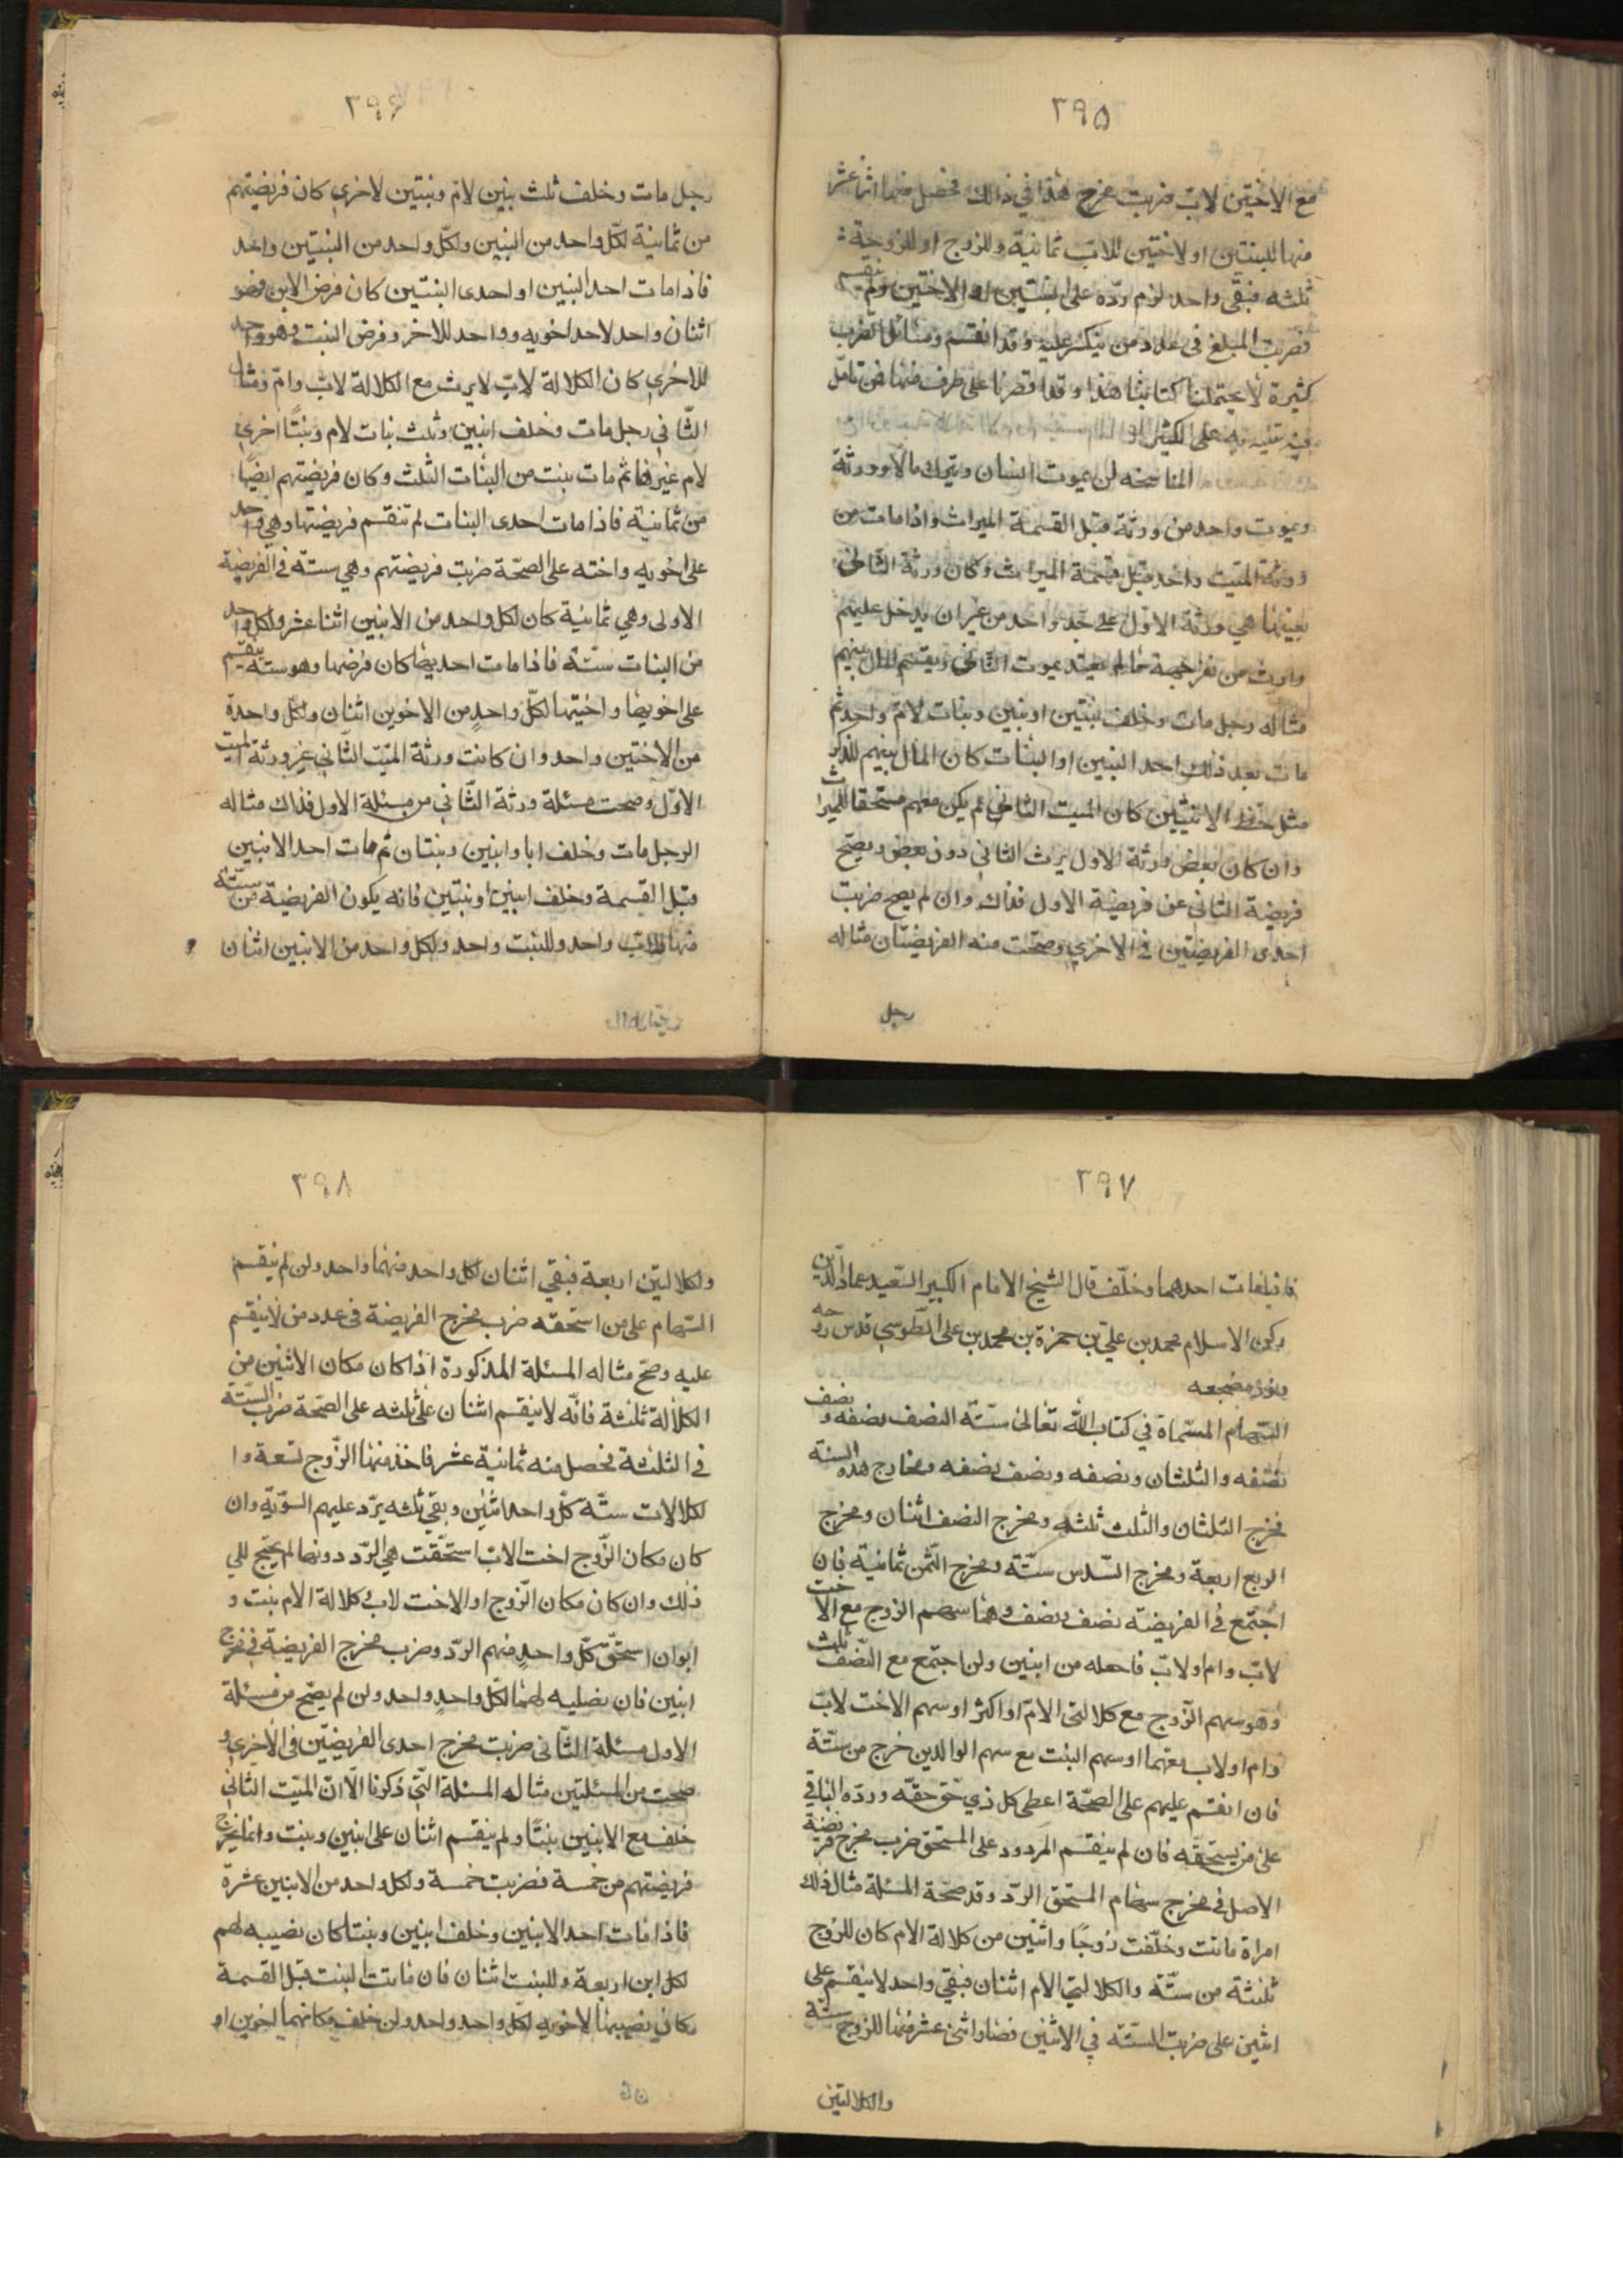 ٢٩٥
مع الاختين لاب ضربت مخرج هذا في ذالك فحصل منها اثنا عشر
منها للبنتين او لاختين للاب ثمانية وللزوج او للزوجية
ثلثه فبقى واحد لزم ردّه على البنتين او الاختين ولم ينقسم
فضربت المبلغ في عدد من ينكسر عليه وقد انقسم ومسائل الضرب
كثيرة لا يحتملها كتابنا هذا وقد اقصرنا على طرف منها فمن تامّل
فيه تنبه به على الكثير
المناسخه ان يموت انسان ويترك مالا وورثة
ويموت واحد من ورثة قبل القسمة الميراث واذا مات من
ورثة الميّت واحد قبل قسمة الميراث وكان ورثة الثاني
بعينها هي ورثة الاول على حد واحد من غير ان يدخل عليهم
وارث من غير جهة مالم يعتد بموت الثاني ويقسم المال بينهم
مثاله رجل مات وخلف بنتين او بنين وبنات لامّ واحد ثم
مات بعد ذلك احد البنين او البنات كان المال بينهم للذكر
مثل حظ الانثيين كان الميت الثاني لم يكن معهم مستحقا للميراث
وان كان بعض ورثة الاول يرث الثاني دون بعض ويصح
فريضة الثاني عن فريضة الاول فذاك وان لم يصح ضربت
احدى الفريضتين في الاخرى وصحت منه الفريضتان مثاله
رجل
٢٩۶
رجل مات وخلف ثلث بنين لامّ وبنتين لاخرى كان فريضتهم
من ثمانية لكلّ واحد من البنين ولكلّ واحد من البنتين واحد
فاذا مات احد البنين او احدى البنتين كان فرض الابن وهو
اثنان واحد لاحد اخويه وواحد للاخر وفرض البنت وهو واحد
للاخرى كان الكلالة لاب لا يرث مع الكلالة لاب وامّ ومثال
الثّاني رجل مات وخلف ابنين وثلث بنات لام وبنتًا اخرى
لام غيرها ثم مات بنت من البنات الثلث وكان فريضتهم ايضًا
من ثمانية فاذا مات احدى البنات لم تنقسم فريضتها وهي واحد
على اخويه واخته على الصحّة ضربت فريضتهم وهي ستّة في الفريضة
الاولى وهي ثمانية كان لكل واحد من الابنين اثنا عشر ولكل واحد
من البنات ستّة فاذا مات احديهما كان فرضها وهو ستة ينقسم
على اخويها واختيها لكلّ واحدٍ من الاخوين اثنان ولكلّ واحدة
من الاختين واحد وان كانت ورثة الميّت الثّاني غير ورثة الميّت
الاوّل وصحت مسئلة ورثة الثّاني من مسئلة الاول فذاك مثاله
الرجل مات وخلف ابا وابنين وبنتان ثم مات احد الابنين
قبل القسمة وخلف ابنين او بنتين فانه يكون الفريضية من ستّة
منها للاب واحد وللبنت واحد ولكل واحد من الابنين اثنان
٢٩٧
فاذا مات احدهما وخلّف قال الشيخ الامام الكبير السّعيد عماد الدّين
ركن الاسلام محمد بن عليّ بن حمزة بن محمد بن على الطّوسي قدس روحه
ونوّر مضجعه
السّهام المسّماة في كتاب الله تعالى ستّة النصف ونصفه ونصف
نصفه والثلثان ونصفه ونصف نصفه ومخارج هذه الستة
فمخرج الثلثان والثلث ثلثه ومخرج النصف اثنان ومخرج
الربع اربعة ومخرج السّدس ستّة ومخرج الثّمن ثمانية فان
اجتمع في الفريضيّه نصف ونصف وهما سهم الزوج مع الاخت
لابّ وام او لابّ فاجعله من اثنين وان اجتمع مع النّصف ثلث
وهو سهم الزّوج مع كلالتى الامّ او اكثر او سهم الاخت لابّ
وام او لاب معهما او سهم البنت مع سهم الوالدين خرج من ستّة
فان انقسم عليهم على الصحّة اعطى كل ذي حّق حقّه وردّه الباقي
على من يستحقّه فان لم ينقسم المردود على المستحق ضرب مخرج فريضة
الاصل في مخرج سهام المستحق الردّ وقد صحّة المسئلة مثال ذلك
امراة ماتت وخلّفت زوجًا واثنين من كلالة الام كان للزوج
ثلثة من ستّة والكلالتي الام اثنان فبقي واحد لا ينقسم على
اثنين على ضربت الستّة في الاثنين فصار اثنى عشر منها للزوج ستّة
والكلالتين
٢٩٨
ولكلالتين اربعة فبقي اثنان لكل واحد منهما واحد وان لم ينقسم
السّهام على من استحّقه ضرب مخرج الفريضة في عدد من لا ينقسم
عليه وصحّ مثاله المسئلة المذكورة اذا كان مكان الاثنين من
الكلالة ثلثة فانّه لا ينقسم اثنان على ثلثه على الصّحة ضرب الستّة
في الثلثة فحصل منه ثمانية عشر فاخذ منها الزّوج تسعة وا
لكلالات ستّة كلّ واحد اثنين وبقي ثلثه يردّ عليهم السّويّة وان
كان مكان الزّوج اخت الابّ استحّقت هي الرّد دونهما لم يحتج الى
ذلك وان كان مكان الزّوج او الاخت لاب كلالة الام بنت و
ابوان استحّق كلّ واحدٍ منهم الردّ وضرب مخرج الفريضة في مخرج
ابنين فان نصليه لهما لكّل واحدٍ واحد وان لم يصّح من مسئلة
الاول مسئلة الثّانى ضربت مخرج احدى الفريضتّين في الاخرى و
صحت من المسئلتين مثاله المسئلة الّتي ذكرنا الّا انّ الميّت الثاني
خلف مع الابنين بنتًا ولم ينقسم اثنان على ابنين وبنت وانما يخرج
فريضتهم من خمسة فضربت خمسة ولكل واحد من الابنين عشرة
فاذا مات احد الابنين وخلف ابنين وبنتا كان نصيبه لهم
لكل ابن اربعة وللبنت اثنان فان ماتت البنت قبل القسمة
وكان نصيبها لاخويه لكلّ واحد واحد وان خلف مكانهما اخوين او